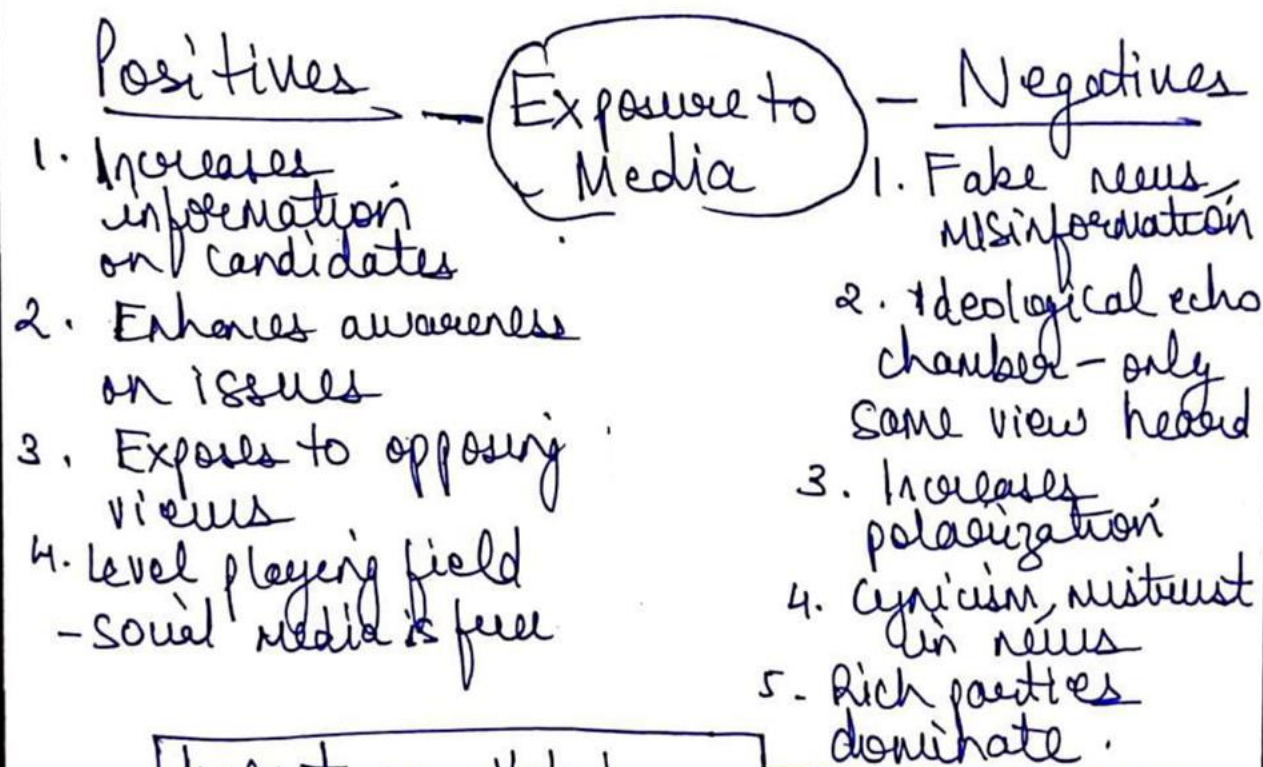 Positives
1. Increases
information
on candidates
2. Enhances awareness
on issues
3. Exposes to opposing
views
4. Level playing field
- Social media is free
Exposure to
Media
Negatives
1. Fake news,
misinformation
2. Ideological echo
chamber - only
same view heard
3. Increases
polarization
4. Cynicism, mistrust
in news
5- Rich parties
dominate.